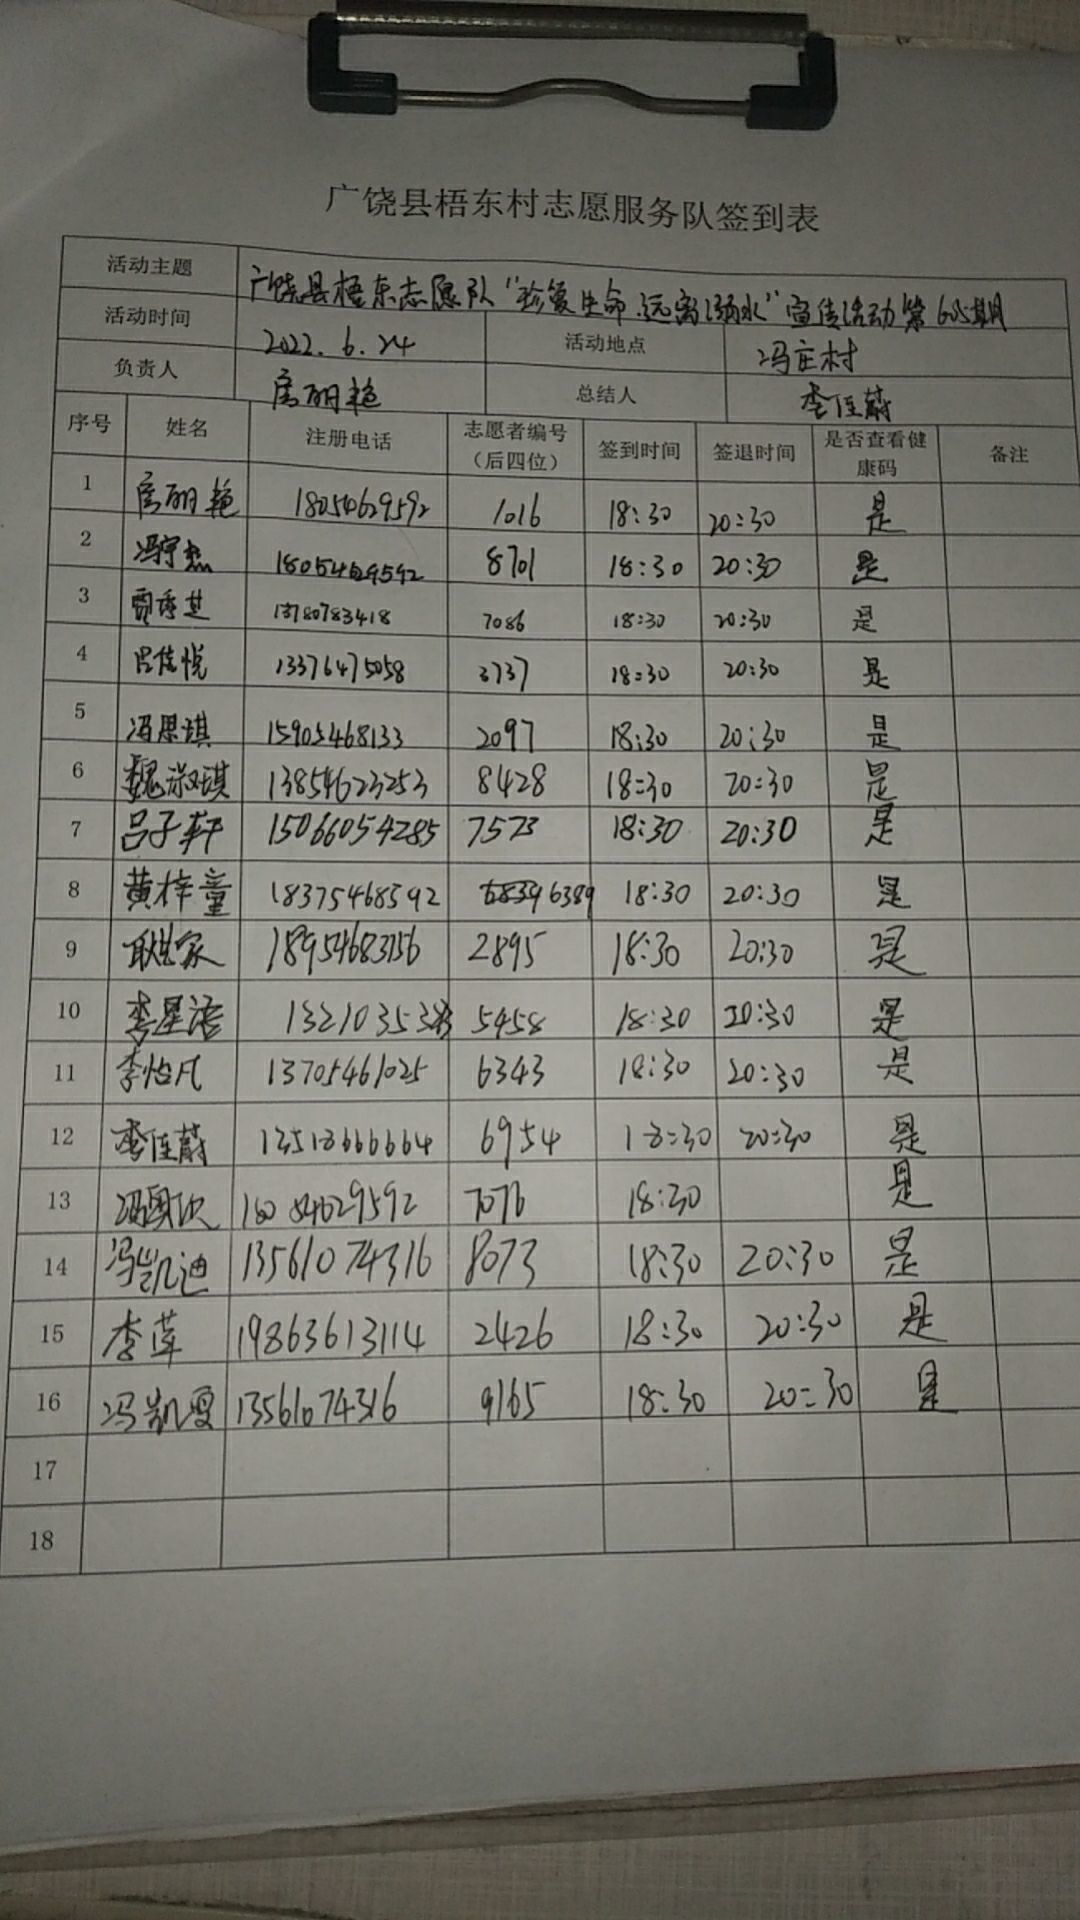 广饶县梧东村志愿服务队签到表
活动主题 广饶县梧东志愿队“珍爱生命.远离溺水”宣传活动第605期
活动时间 2022.6.24 活动地点 冯庄村
负责人 房丽艳 总结人 李佳蔚
序号 姓名 注册电话 志愿者编号（后四位） 签到时间 签退时间 是否查看健康码 备注
1 房丽艳 18054629592 1016 18:30 20:30 是
2 冯宇杰 18054629592 8701 18:30 20:30 是
3 13780783418 7086 18:30 20:30 是
4 吕佳悦 13376475058 3737 18:30 20:30 是
5 冯思琪 15905468133 2097 18:30 20:30 是
6 魏淑琪 13854623253 8428 18:30 20:30 是
7 吕子轩 15066054285 7573 18:30 20:30 是
8 黄梓童 18375468592 6389 18:30 20:30 是
9 18954683156 2895 18:30 20:30 是
10 李星语 5458 18:30 20:30 是
11 李怡凡 13705461025 6343 18:30 20:30 是
12 李佳蔚 6954 18:30 20:30 是
13 18054629592 7076 18:30 是
14 冯凯迪 13561074316 8073 18:30 20:30 是
15 李莲 19863613114 2426 18:30 20:30 是
16 冯凯雯 13561074316 9165 18:30 20:30 是
17
18